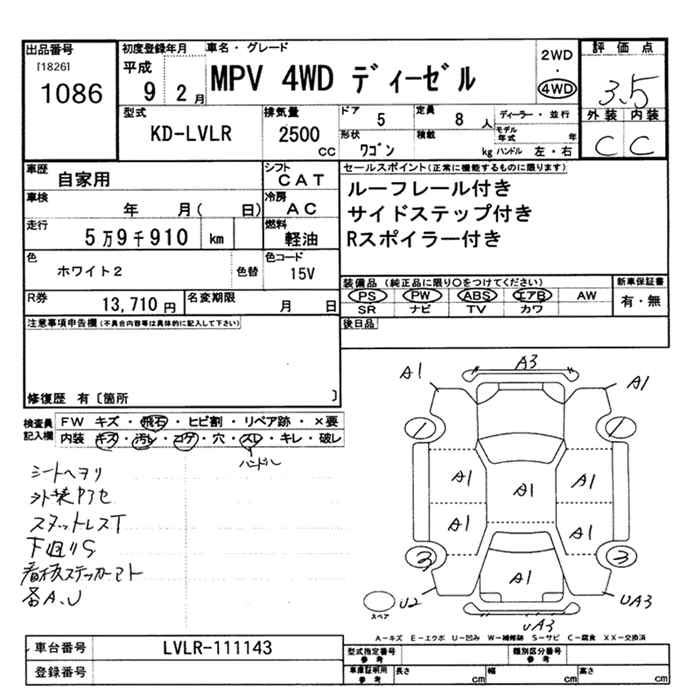 出品番号
[1826]
1086
初度登録年月
平成
9 2月
車名・グレード
MPV 4WD ディーゼル
2WD
・
4WD
評価点
3.5
外装 内装
C C
型式
KD-LVLR
排気量
2500
CC
ドア
5
定員
8 人
形状
ワゴン
積載
kg
ディーラー・並行
モデル年式 年
ハンドル 左・右
車歴
自家用
シフト
CAT
車検
年 月( 日)
冷房
AC
走行
5万9千910 km
燃料
軽油
色
ホワイト2
色替
色コード
15V
R券
13,710円
名変期限
月 日
セールスポイント(正常に機能するものに限ります)
ルーフレール付き
サイドステップ付き
Rスポイラー付き
装備品(純正品に限り○をつけてください)
PS PW ABS エアB AW
SR ナビ TV カワ
新車保証書
有・無
後日品
注意事項申告欄(不具合内容等は具体的に記入して下さい)
修復歴 有〔箇所 〕
検査員
記入欄
FW キズ・飛石・ヒビ割・リペア跡・×要
内装 キズ・汚レ・コゲ・穴・スレ・キレ・破レ
ハンドル
シートヘタリ
スタットレスT
下廻りS
A1
A3
A1
1
1
A1
A1
A1
A1
A1
3
3
A1
U2
UA3
UA3
スペア
A-キズ E-エクボ U-凹み W-補修跡 S-サビ C-腐食 XX-交換済
車台番号
LVLR-111143
登録番号
型式指定番号
参考
類別区分番号
参考
車庫証明用
参考
長さ cm
幅 cm
高さ cm